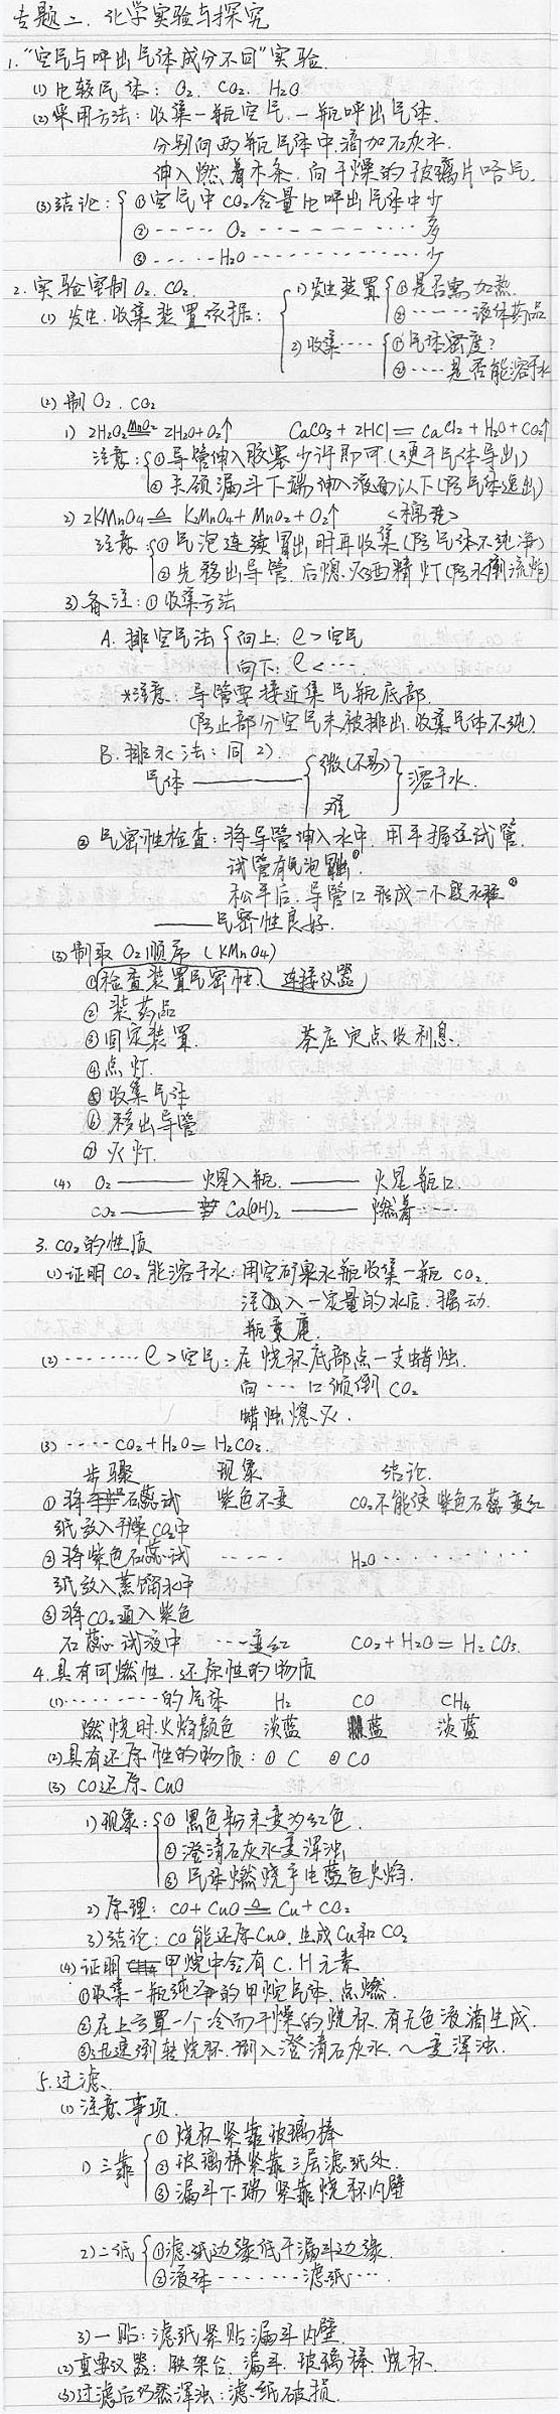 专题二、化学实验与探究
1."空气与呼出气体成分不同"实验.
(1) 比较气体: O₂. CO₂. H₂O
(2)采用方法: 收集一瓶空气.一瓶呼出气体.
分别向两瓶气体中滴加石灰水.
伸入燃着木条.向干燥的玻璃片哈气.
(3)结论: ①空气中CO₂含量比呼出气体中少
②-----O₂---------多
③-----H₂O---------少
2.实验室制O₂.CO₂.
(1) 发生.收集装置依据: 1)发生装置 ①是否需加热.
②------液体药品
2)收集---- ①气体密度?
②----是否能溶于水
(2) 制O₂.CO₂
1) 2H₂O₂ MnO₂ 2H₂O+O₂↑ CaCO₃+2HCl=CaCl₂+H₂O+CO₂↑
注意: ①导管伸入胶塞少许即可.(便于气体导出)
②长颈漏斗下端伸入液面以下(防气体逸出)
2) 2KMnO₄ △ K₂MnO₄+MnO₂+O₂↑ <棉花>
注意: ①气泡连续冒出时再收集(防气体不纯净)
②先移出导管.后熄灭酒精灯(防水倒流炸)
3)备注: ①收集方法
A. 排空气法 向上: ρ>空气
向下: ρ<---.
*注意: 导管要接近集气瓶底部.
(防止部分空气未被排出.收集气体不纯)
B.排水法: 同2).
气体——— 微(不易) 难 溶于水.
②气密性检查: 将导管伸入水中.用手握住试管.
试管有气泡冒出①.
松手后.导管口形成一小段水柱②
———气密性良好.
(3)制取O₂顺序(KMnO₄)
①检查装置气密性.(连接仪器)
②装药品
③固定装置. 茶庄定点收利息.
④点灯.
⑤收集气体
⑥移出导管
⑦灭灯.
(4) O₂———火星入瓶.———火星瓶口.
CO₂———Ca(OH)₂———燃着----
3.CO₂的性质
(1)证明CO₂能溶于水: 用空矿泉水瓶收集一瓶CO₂.
注入一定量的水后.振动.
瓶变瘪.
(2)-------ρ>空气: 在烧杯底部点一支蜡烛.
向---口倾倒CO₂
蜡烛熄灭.
(3)----CO₂+H₂O=H₂CO₃.
步骤 现象 结论.
①将石蕊试 紫色不变 CO₂不能使紫色石蕊变红
纸放入干燥CO₂中
②将紫色石蕊试 ----- H₂O---------
纸放入蒸馏水中
③将CO₂通入紫色
石蕊试液中 ---变红 CO₂+H₂O=H₂CO₃.
4.具有可燃性.还原性的物质
(1)--------的气体 H₂ CO CH₄
燃烧时火焰颜色 淡蓝 蓝 淡蓝
(2)具有还原性的物质: ①C ②CO
(3) CO还原CuO
1)现象: ①黑色粉末变为红色.
②澄清石灰水变浑浊
③气体燃烧产生蓝色火焰.
2)原理: CO+CuO △ Cu+CO₂
3)结论: CO能还原CuO.生成Cu和CO₂
(4)证明甲烷中含有C.H元素
①收集一瓶纯净的甲烷气体.点燃.
②在上方罩一个冷而干燥的烧杯.有无色液滴生成.
③迅速倒转烧杯.倒入澄清石灰水.~变浑浊.
5.过滤
(1)注意事项.
1)三靠 ①烧杯紧靠玻璃棒
②玻璃棒紧靠三层滤纸处.
③漏斗下端紧靠烧杯内壁
2)二低 ①滤纸边缘低于漏斗边缘.
②液体-------滤纸---.
3)一贴: 滤纸紧贴漏斗内壁.
(2)重要仪器: 铁架台.漏斗.玻璃棒.烧杯.
(3)过滤后仍然浑浊: 滤纸破损.